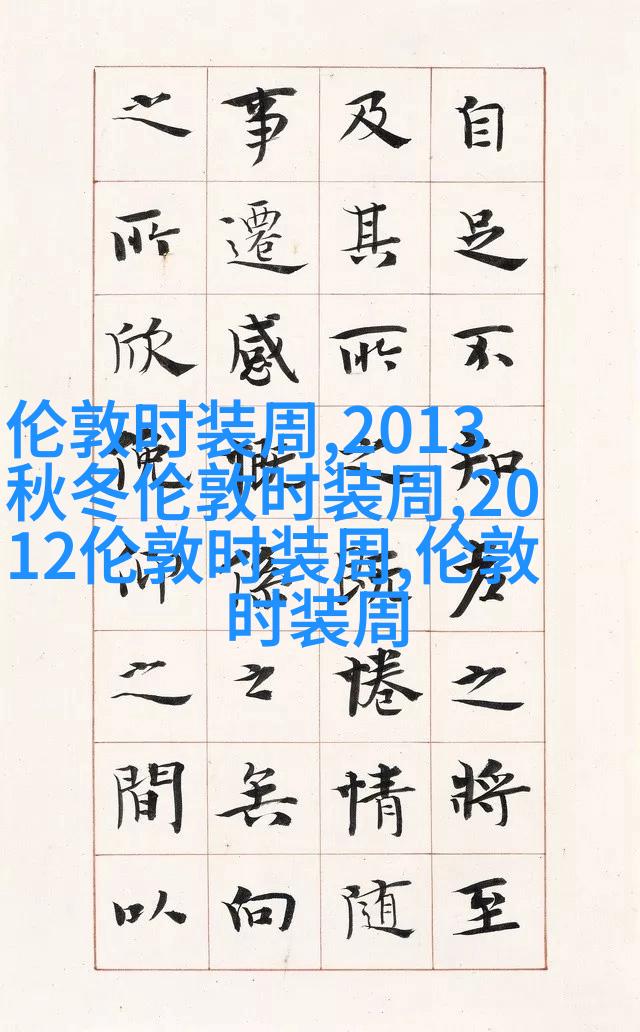 自足不知老之將至
及其所之既惓情隨
事遷感慨係之矣向
之所欣俛仰之間以
伦敦时装周,2013
秋冬伦敦时装周,20
12伦敦时装周,伦敦
时装周